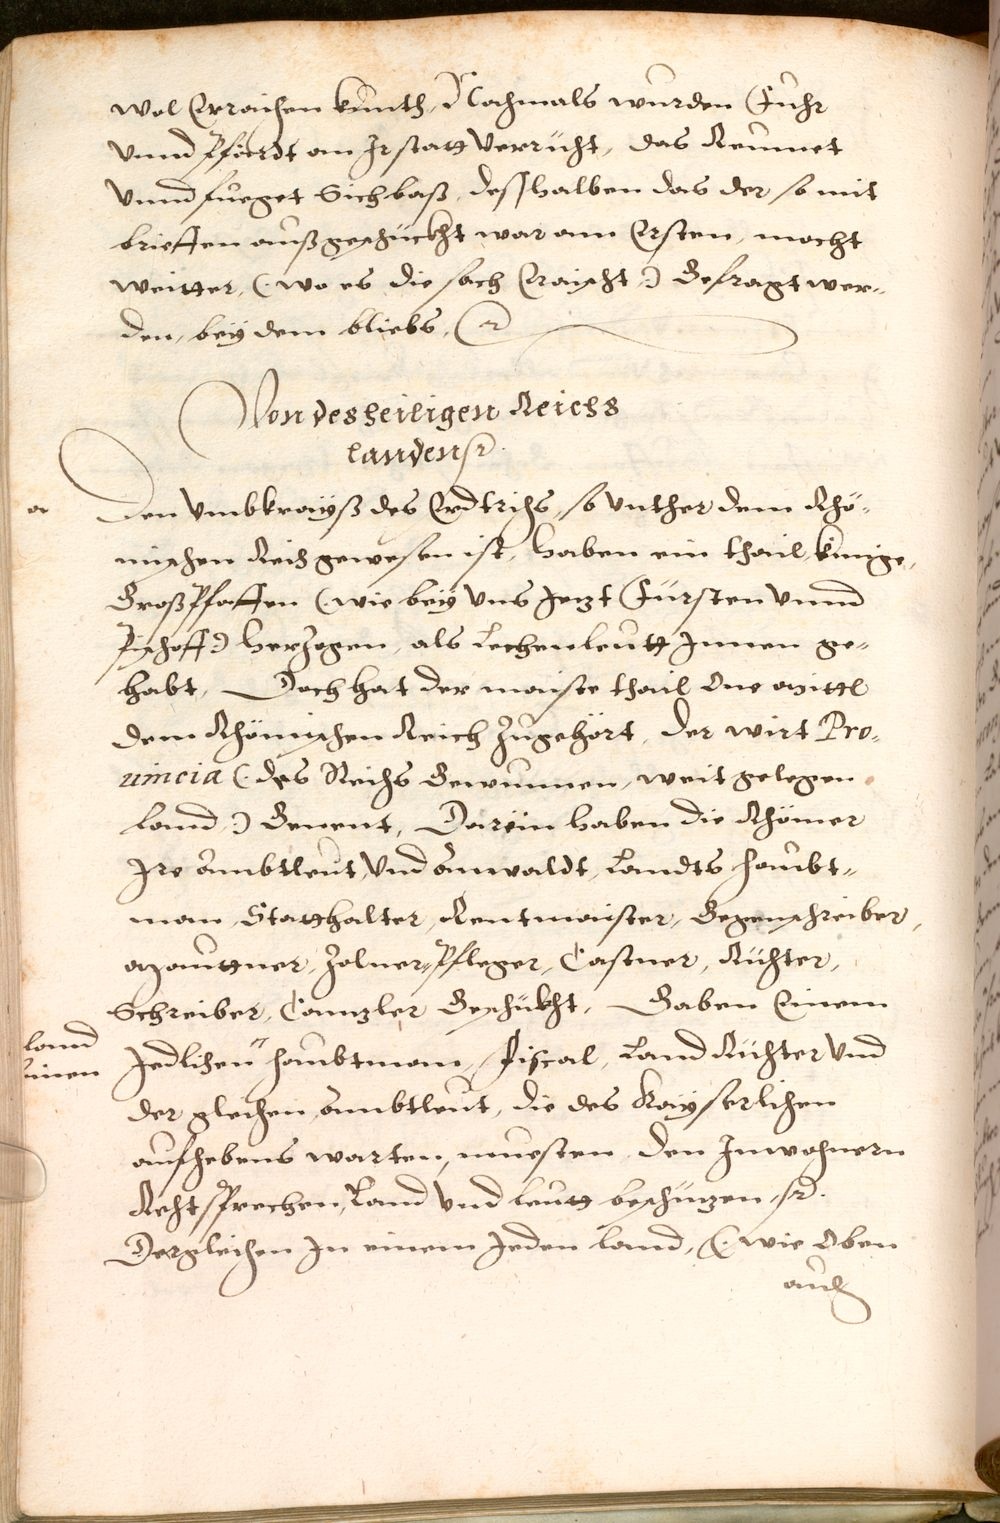 wol Erraichen kunth, Nachmals wurden Fuhr
Vnnd Pfärdt an Ir statt Verricht, das Reumet
Vnnd fueget Sich baß, desshalben das der so mit
brieffen außgeschückht war am Ersten, mocht
weitter, (: wo es die sach Eraischt :) Gefragt wer-
den, beÿ dem bliebs, Er
Von des heiligen Reichs
landen sr.
Den Vmbkraÿß des Erdtrichs, so vnther dem Rhö-
mischen Reich gewesen ist, haben ein thail, künige,
Groß Pfaffen (: wie beÿ Vns Jetzt Fürsten Vnnd
Pischoff :) Herzogen, als Lechenleutt Innen ge-
habt, Doch hat der maiste thail One mittl
dem Rhömischen Reich Zugehört, der wirt Pro-
uincia (: des Reichs Gewunnen, weit gelegen
Land :) Genent, Darein haben die Rhömer
Ire Ambtleut, Vnd Anwaldt, Landts haubt-
man, Statthalter, Rentmaister, Gegenschreiber,
Mauttner, Zolner, Pfleger, Castner, Richter,
Schreiber, Canzler Geschükht, Gaben Einem
Land
Jedlichen haubtman, Fiscal, Land Richter Vnd
der gleichen Ambtleut, die des Kaÿserlichen
aufhebens warten, muesten den Inwohnern
Recht sprechen, Land Vnd Leutt beschüzen, sr.
Dergleichen In einem Jeden Land, (: wie Oben
auch